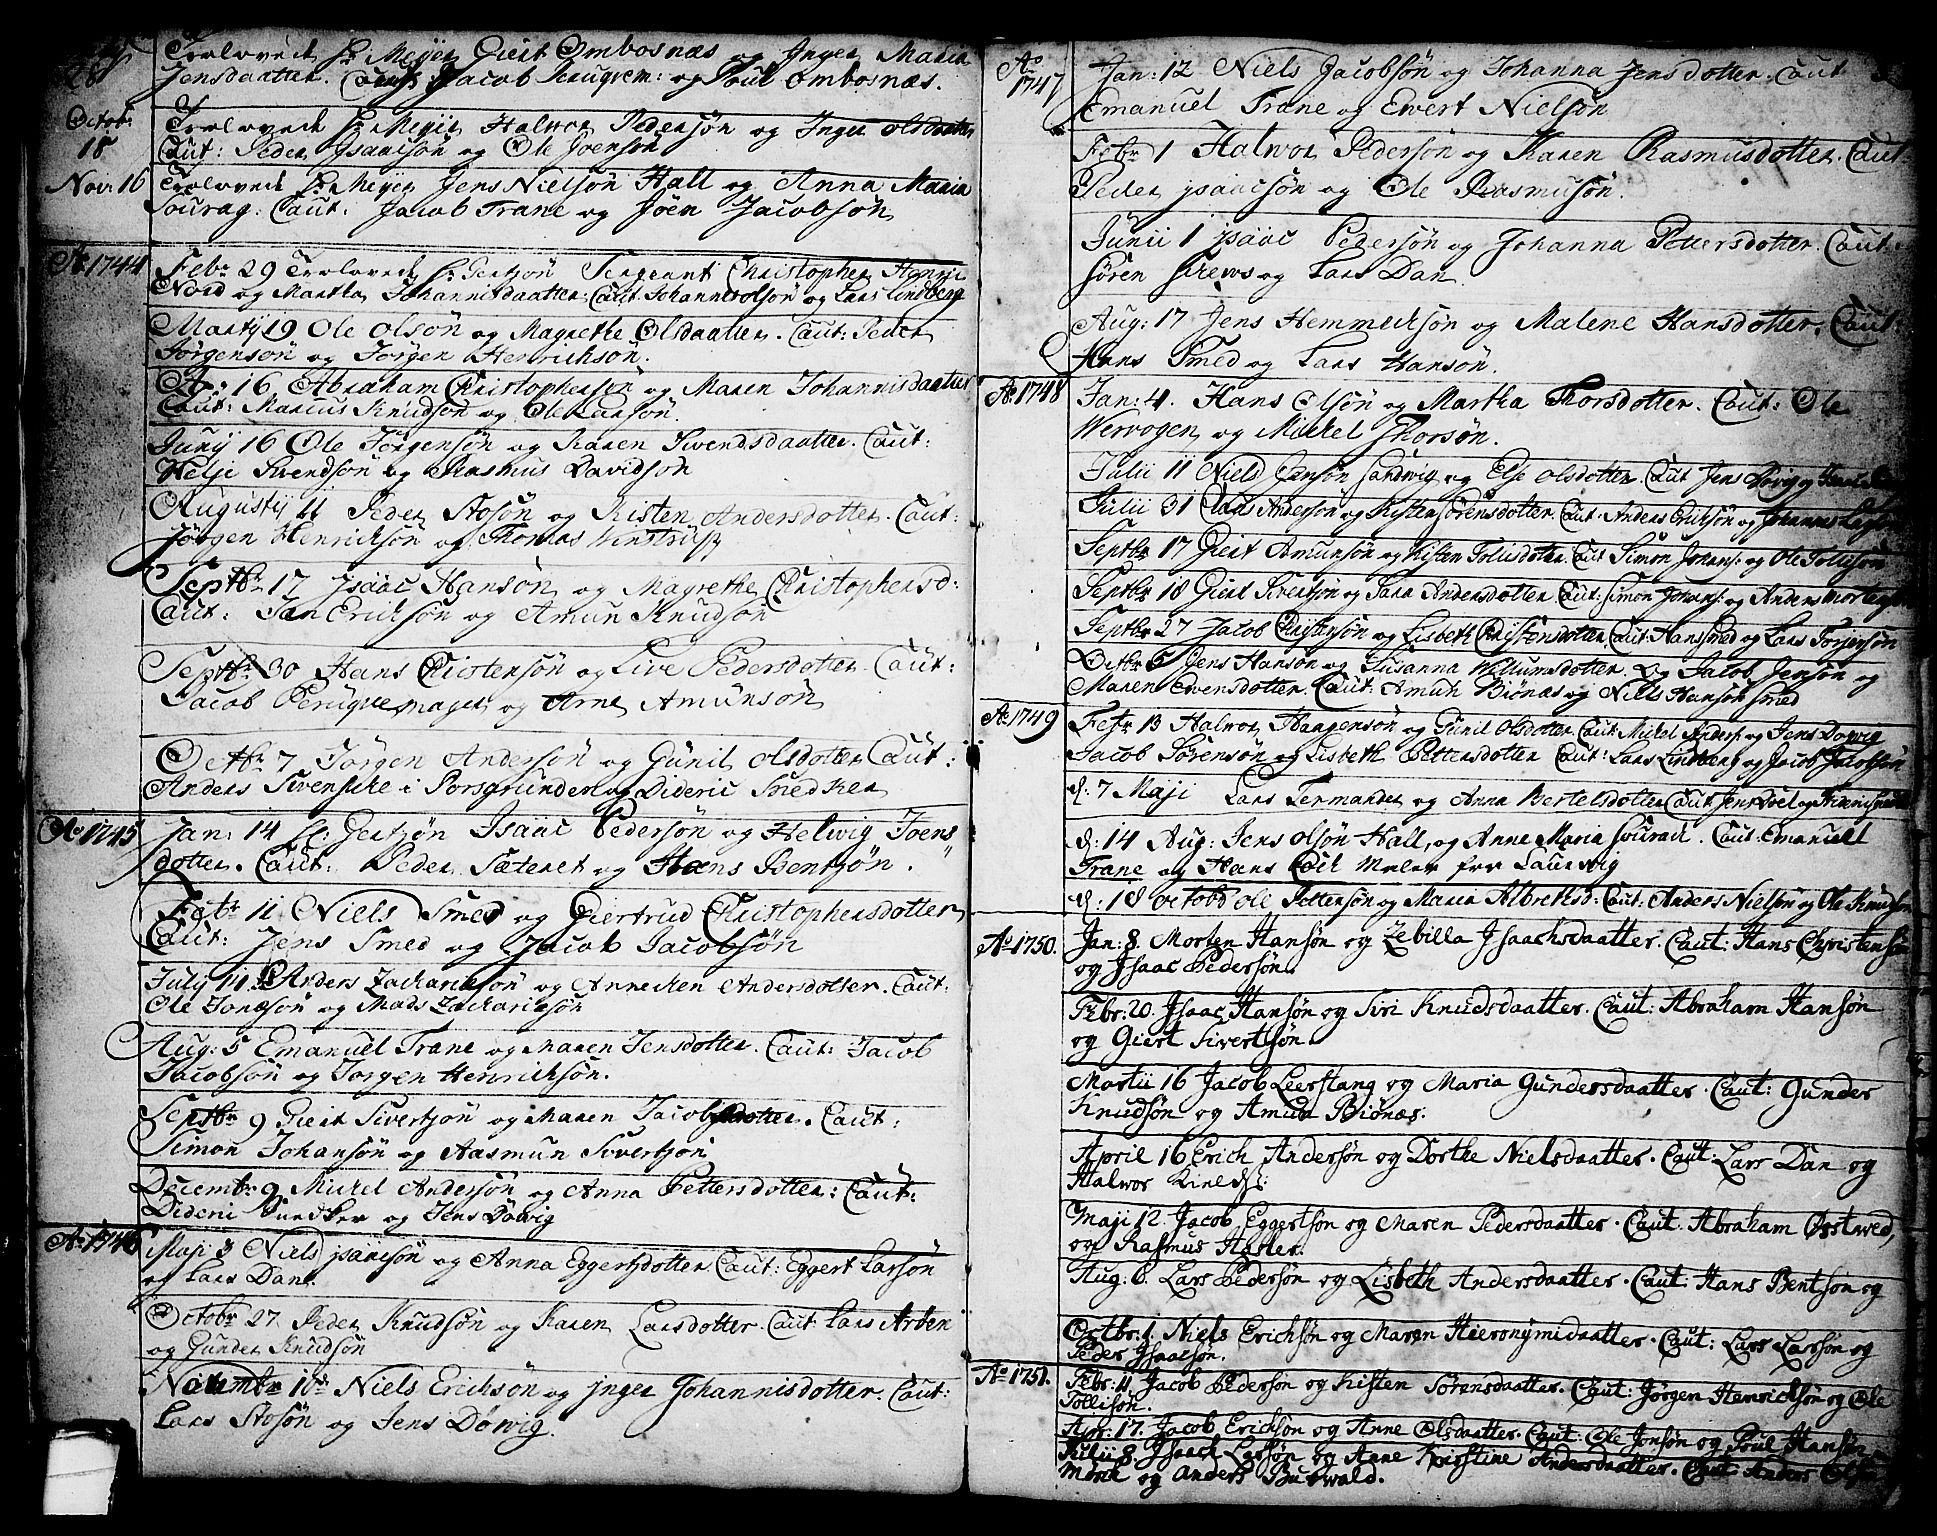 28
Trolovede Hr: Meyer Giert Ombosnæs og Inger Maria
Jensdaatter. Caut: Jacob Peruqvem: og Poul Ombosnæs.
Octobr:
18
Trolovede Hr Meyer Halwor Pedersøn og Inger Olsdaatter
Caut: Peder Isaacsøn og Ole Joensøn
Novr 16
Trolovede Hr Meyer Jens Nielsøn Hall og Anna Maria
Sourag: Caut: Jacob Trane og Joen Jacobsøn
Ao 1744
Febr 29 Trolovede Hr: Gertzøn Sergeant Christopher
Nord og Martha Johannisdaatter: Caut: Johannes olsøn og Lars Lindberg
Martij 19 Ole Olsøn og Magrethe Olsdaatter. Caut: Peder
Jørgensøn og Jørgen Henricksøn.
Apr: 16 Abraham Christophersøn og Maren Johannisdaatter
Caut: Marcus Knudsøn og Ole Larsøn.
Junij 16 Ole Jørgensøn og Karen Swendsdaatter. Caut:
Helje Swendsøn og Rasmus Davidsøn
Augustij 11 Peder Stosøn og Kisten Andersdotter. Caut:
Jørgen Henricksøn og Thomas Winstrup
Septbr 17 Isaac Hansøn og Magrethe Christophersd:
Caut: Jan Ericksøn og Amun Knudsøn
Septbr 30 Hans Christensøn og Live Pedersdotter Caut:
Jacob Peruqvemager og Arne Amunsøn
Octbr 7 Jørgen Andersøn og Gunil olsdotter Caut:
Anders Svenske i Porsgrunden og Dideric Snedker
Ao 1745
Jan: 14 Hr: Gertzøn Isaac Pedersøn og Helwig Joens
dotter. Caut: Peder Sæteret og Hans Bentzøn.
Febr 11 Niels Smed og Giertrud Christophersdotter
Caut: Jens Smed og Jacob Jacobsøn
July 14 Anders Zachariesøn og Annecken Andersdotter. Caut:
Ole Jonæsøn og Mads Zachariesøn
Aug: 5 Emanuel Trane og Maren Jensdotter. Caut: Jacob
Jacobsøn og Jørgen Henricksøn.
Septbr 9 Giert Sivertzøn og Maren Jacobsdotter. Caut:
Simon Johansøn og Aasmun Sivertzøn
Decembr 9 Mickel Andersøn og Anna Pettersdotter: Caut:
Dideric Snedker og Jens Dørwig
Ao 1746
Maji 3 Niels Isaacsøn og Anna Eggertsdotter Caut: Eggert Larsøn
og Lars Dan.
Octobr 27 Peder Knudsøn og Karen Larsdotter. Caut Lars Arben
og Gunder Knudsøn
Novembr 10 Niels Ericksøn og Inger Johannisdotter. Caut:
Lars Stosøn og Jens Dørwig.
Ao
1747
Jan: 12 Niels Jacobsøn og Johanna Jensdotter. Caut
Emanuel Trane og Ewert Nielsøn
Febr 1 Halwor Pedersøn og Karen Rasmusdotter. Caut:
Peder Isaacsøn og Ole Rasmusøn.
Junii 1 Isaac Pedersøn og Johanna Pettersdotter. Caut:
Søren Skrews og Lars Dan
Aug: 17 Jens Hemmecksøn og Malene Hansdotter. Caut:
Hans Smed og Lars Hansøn.
Ao 1748
Jan: 4. Hans Olsøn og Martha Thorsdotter. Caut: Ole
Wervogen og Mickel Thorsøn.
Julii 11 Niels Jansøn Sandwig og Else olsdotter. Caut Jens Dørwig og
Julii 31 Claus Andersøn og Kisten Sørensdotter. Caut: Anders Ericksøn og Johannes
Septbr 17 Giert Amunsøn og Kisten Tollisdotter Caut Simon Johans: og Ole Tollisøn
Septbr 18 Giert Sivertsøn og Sara Andersdotter Caut: Simon Johans: og Anders Mortensøn
Septbr 27 Jacob Christensøn og Lisbeth Christensdotter. Caut: Hans Smed og Lars Torgersøn
Octbr 5 Jens Hansøn og Susanna Willumsdotter. Og Jacob Jensøn og
Maren Evensdotter. Caut: Amun Biønæs og Niels Hansøn Smed
Ao 1749
Febr 13 Halwor Haagensøn og Gunil Olsdotter. Caut: Mickel Anders: og Jens Dørwig
Jacob Sørensøn og Lisbeth Pettersdotter Caut: Lars Lindberg og Jacob Jacobsøn
d: 7 Maji Lars Fermandet og Anna Bertelsdotter Caut Jens Doel og
d: 14 Aug: Jens Olsøn Hall, og Anne Maria Sourau. Caut: Emanuell
Trane og Hans Cock Maler fra Laurwig
d: 18 octobr ole Pettersøn og Maria Albretsd: Caut: Anders Nielsøn og Ole Knudsøn
Ao 1750.
Jan: 8. Morten Hansøn og Zebilla Isaachsdaatter. Caut: Hans Christensøn
og Isaac Pedersøn.
Febr: 20. Isaac Hansøn og Siri Knudsdaatter. Caut: Abraham Hansøn
og Giert Sivertsøn.
Martii 16 Jacob Leerstang og Maria Gundersdaatter. Caut: Gunder
Knudsøn og Amun Biønæs.
April 16 Erich Andersøn og Dorthe Nielsdaatter. Caut: Lars Dan og
Halwor
Maji 12. Jacob Eggertsøn og Maren Pedersdaatter. Caut: Abraham Østwed,
og Rasmus Hasler.
Aug: 6. Lars Pedersøn og Lisbeth Andersdaatter. Caut: Hans Bentsøn og
Octbr: 1. Niels Ericksøn og Maren Hieronymidaatter. Caut: Lars Larsøn og
Peder Isaacsøn.
Ao 1751.
Febr: 11 Jacob Pedersøn og Kisten Sørensdaatter. Caut: Jørgen Henricksøn og Ole
Tollisøn.
Apr: 17. Jacob Ericksøn og Anne Olsdaatter. Caut: Ole Jonsøn og Poul Hansøn
Julii 8. Isaach Larsøn og Anne Kirstine Andersdaatter. Caut: Anders
Mørch og Anders Buswald.